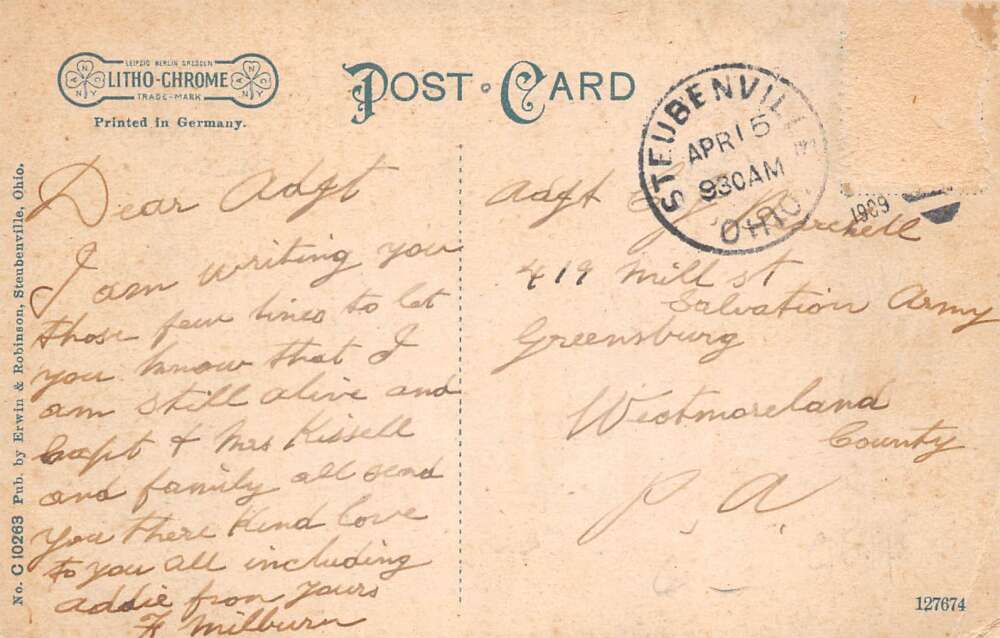 LEIPZIG BERLIN DRESDEN
LITHO-CHROME
TRADE-MARK
Printed in Germany.
POST CARD
STEUBENVILLE
APR 15
930AM
OHIO.
1909
No. C 10263 Pub. by Erwin & Robinson, Steubenville, Ohio.
Dear Adgt
I am writing you
those few lines to let
you know that I
am still alive and
Capt & Mrs Kissell
and family all send
you there Kind love
to you all including
addie from yours
F Milburn
Adgt
419 Mill st
Salvation Army
Greensburg
Westmoreland
County
P. A.
127674